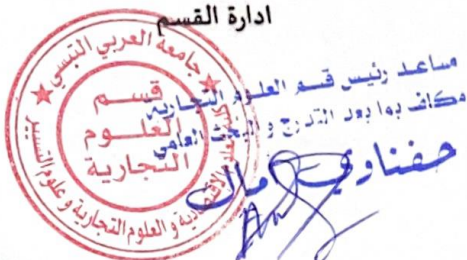 ادارة القسم
جامعة العربي التبسي
قسم
العلوم
التجارية
كلية العلوم الاقتصادية و العلوم التجارية و علوم التسيير
مساعد رئيس قسم العلوم التجارية
مكلف بما بعد التدرج و البحث العلمي
حفناوي أمال